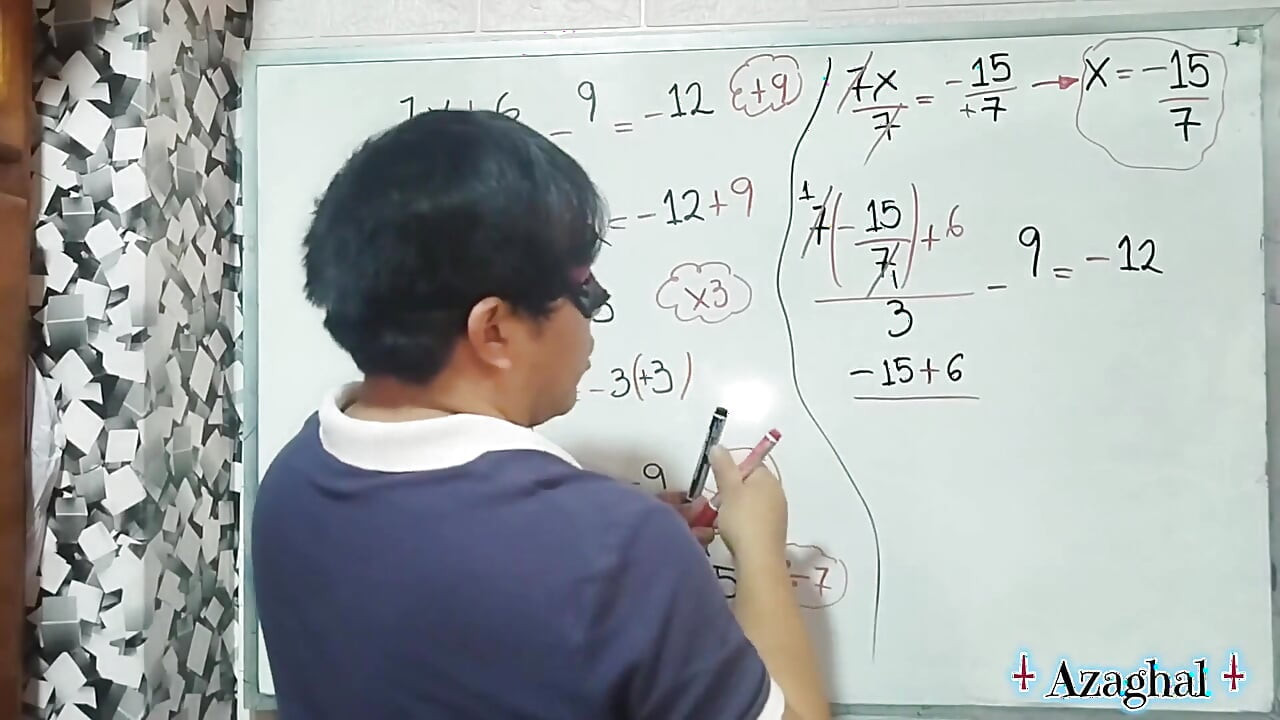 - 9 = -12 +9
= -12+9
x3
= -3(+3)
-9
5 ÷7
7x/7 = -15/+7 → x = -15/7
1
7(-15/7)+6 / 3 - 9 = -12
-15+6
Azaghal